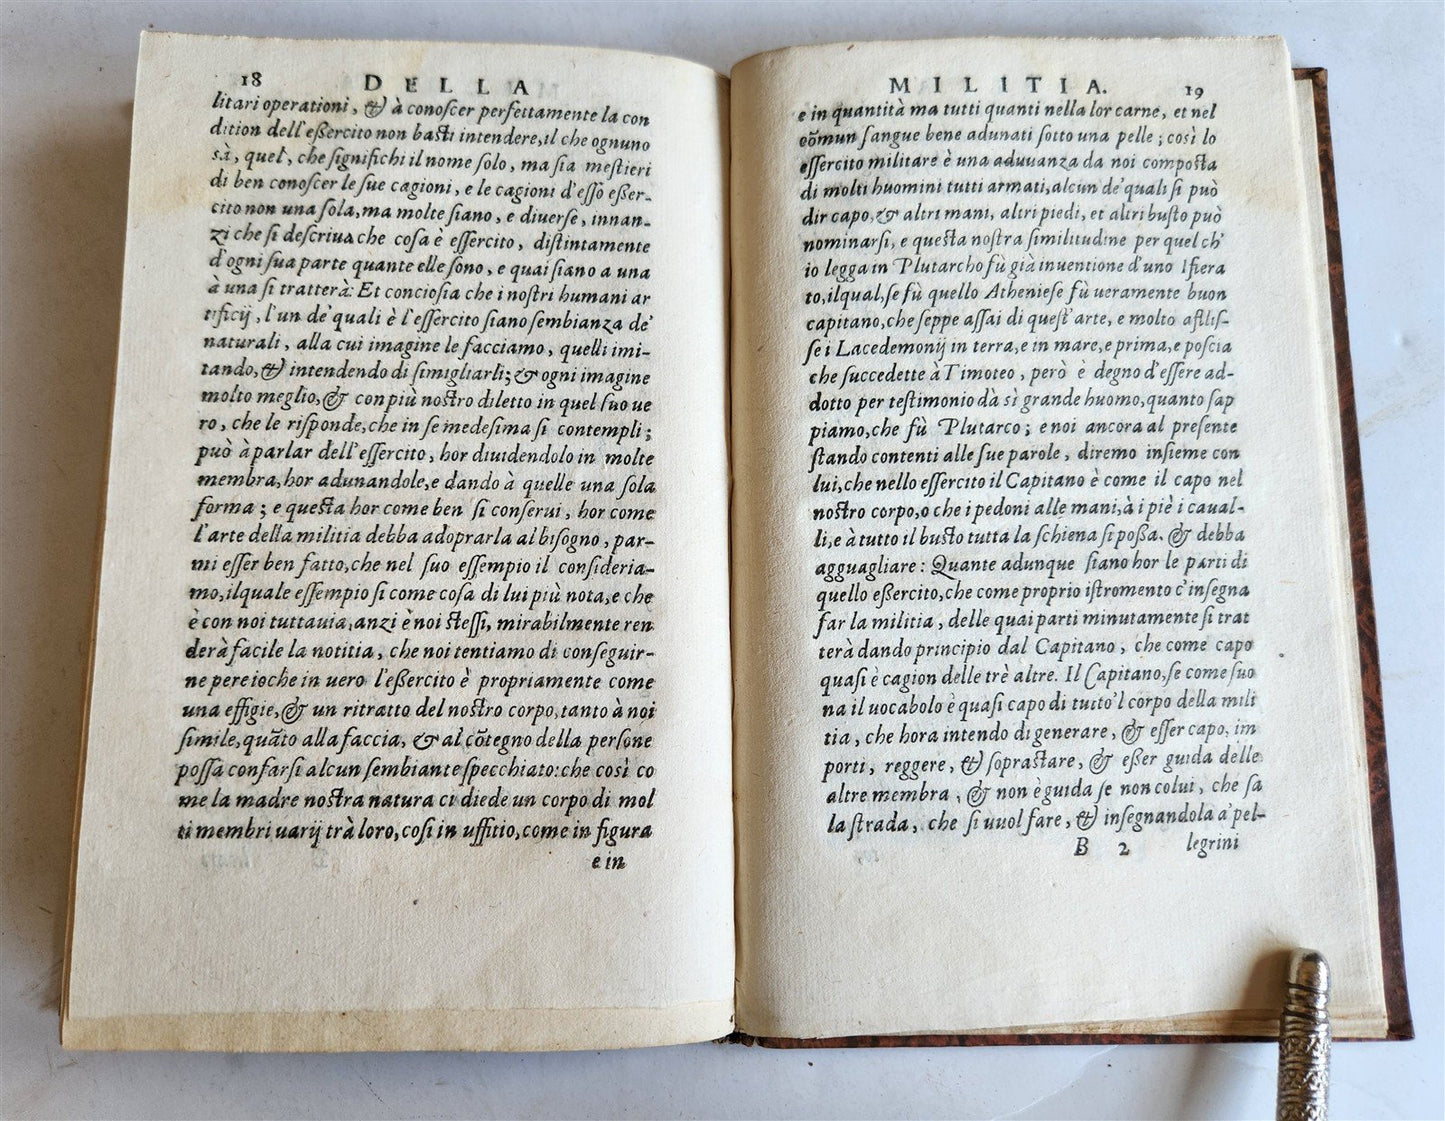 18 DELLA
litari operationi, & à conoſcer perfettamente la con
dition dell'eßercito non basti intendere, il che ognuno
sà, quel, che ſignifichi il nome ſolo, ma ſia mestieri
di ben conoſcer le ſue cagioni, e le cagioni d'eſſo eßer-
cito non una ſola, ma molte ſiano, e diuerſe, innan-
zi che ſi deſcriua che coſa è eſſercito, diſtintamente
d'ogni ſua parte quante elle ſono, e quai ſiano a una
à una ſi tratterà: Et concioſia che i noſtri humani ar
tificij, l'un de' quali è l'eſſercito ſiano ſembianza de'
naturali, alla cui imagine le facciamo, quelli imi-
tando, & intendendo di ſimigliarli; & ogni imagine
molto meglio, & con più noſtro diletto in quel ſuo ue
ro, che le riſponde, che in ſe medeſima ſi contempli;
può à parlar dell'eſſercito, hor diuidendolo in molte
membra, hor adunandole, e dando à quelle una ſola
forma; e questa hor come ben ſi conſerui, hor come
l'arte della militia debba adoprarla al biſogno, par-
mi eſſer ben fatto, che nel ſuo eſſempio il conſideria-
mo, ilquale eſſempio ſi come coſa di lui più nota, e che
è con noi tuttauia, anzi è noi steſſi, mirabilmente ren
derà facile la notitia, che noi tentiamo di conſeguir-
ne pereioche in uero l'eßercito è propriamente come
una effigie, & un ritratto del noſtro corpo, tanto à noi
ſimile, quãto alla faccia, & al cõtegno della perſone
poſſa confarſi alcun ſembiante ſpecchiato: che così co
me la madre noſtra natura ci diede un corpo di mol
ti membri uarij trà loro, coſi in uffitio, come in figura
e in
MILITIA. 19
e in quantità ma tutti quanti nella lor carne, et nel
cõmun ſangue bene adunati ſotto una pelle; così lo
eſſercito militare è una aduuanza da noi composta
di molti huomini tutti armati, alcun de' quali ſi può
dir capo, & altri mani, altri piedi, et altri buſto può
nominarſi, e questa noſtra ſimilitudine per quel ch'
io legga in Plutarcho fù già inuentione d'uno Ifiera
to, ilqual, ſe fù quello Athenieſe fù ueramente buon
capitano, che ſeppe aſſai di queſt'arte, e molto affliſ-
ſe i Lacedemonij in terra, e in mare, e prima, e poſcia
che ſuccedette à Timoteo, però è degno d'eſſere ad-
dotto per teſtimonio dà sì grande huomo, quanto ſap
piamo, che fù Plutarco; e noi ancora al preſente
ſtando contenti alle ſue parole, diremo inſieme con
lui, che nello eſſercito il Capitano è come il capo nel
noſtro corpo, o che i pedoni alle mani, à i piè i caual-
li, e à tutto il buſto tutta la ſchiena ſi poßa, & debba
agguagliare: Quante adunque ſiano hor le parti di
quello eßercito, che come proprio iſtromento c'inſegna
far la militia, delle quai parti minutamente ſi trat
terà dando principio dal Capitano, che come capo
quaſi è cagion delle trè altre. Il Capitano, ſe come ſuo
na il uocabolo è quaſi capo di tutto'l corpo della mili
tia, che hora intendo di generare, & eſſer capo, im
porti, reggere, & ſopraſtare, & eßer guida delle
altre membra, & non è guida ſe non colui, che ſa
la ſtrada, che ſi uuol fare, & inſegnandola a' pel-
B 2 legrini